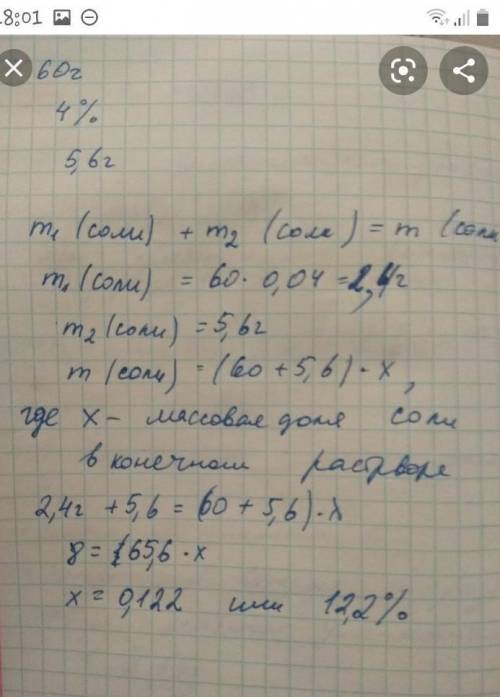 18:01
60г
4%
5,6г
m₁ (соли) + m₂ (соли) = m (соли
m₁ (соли) = 60 · 0,04 = 2,4г
m₂ (соли) = 5,6г
m (соли) = (60 + 5,6) · x,
где x – массовая доля соли
в конечном растворе
2,4г + 5,6 = (60 + 5,6) · x
8 = 65,6 · x
x = 0,122 или 12,2%